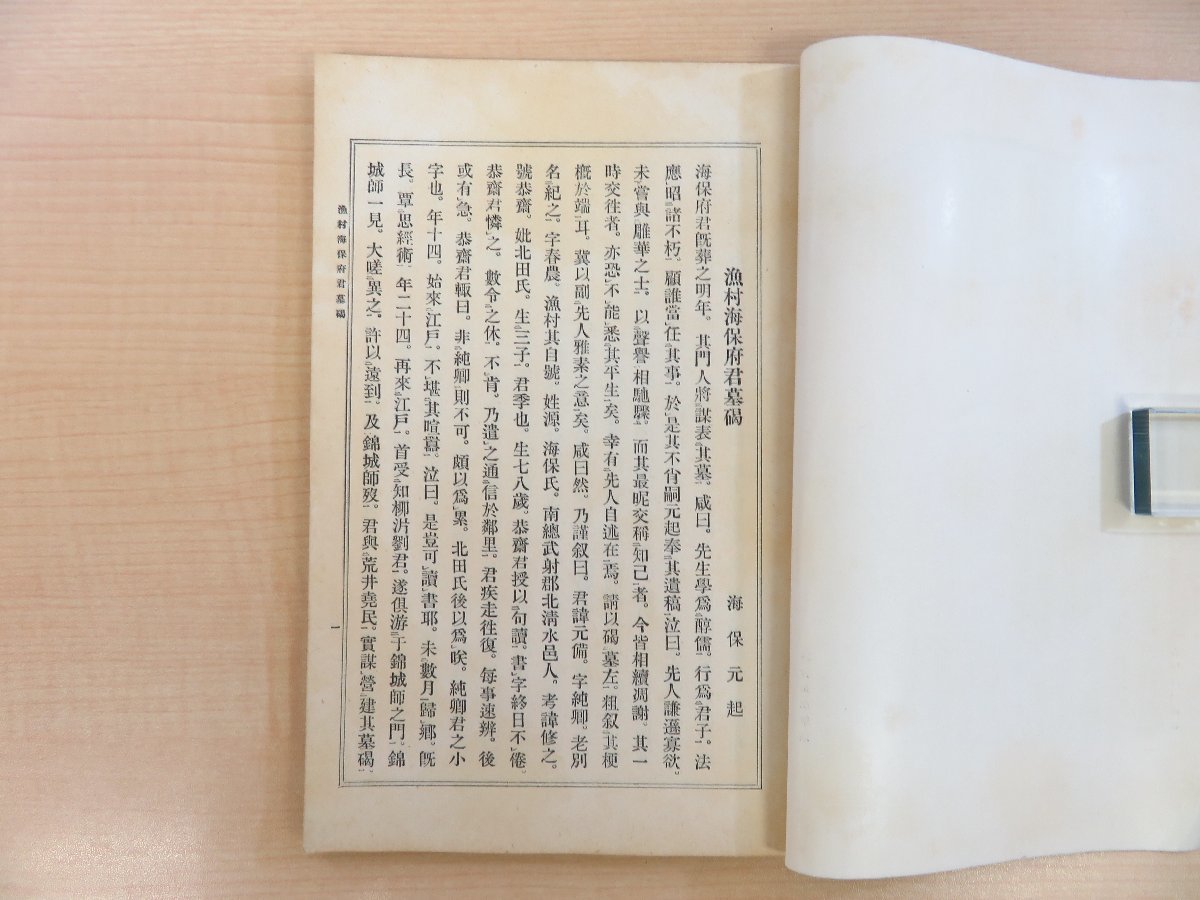 漁村海保府君墓碣
海保元起
海保府君既葬之明年。其門人將謀表其墓。咸曰。先生學爲醇儒。行爲君子。法
應昭諸不朽。顧誰當任其事。於是其不肖嗣元起奉其遺稿泣曰。先人謙遜寡欲。
未嘗與雕華之士。以聲譽相馳驟。而其最昵交稱知己者。今皆相續凋謝。其一
時交往者。亦恐不能悉其平生矣。幸有先人自述在焉。請以碣墓左。粗叙其梗
概於端耳。冀以副先人雅素之意矣。咸曰然。乃謹叙曰。君諱元備。字純卿。老別
名紀之。字春農。漁村其自號。姓源。海保氏。南總武射郡北清水邑人。考諱修之。
號恭齋。妣北田氏。生三子。君季也。生七八歲。恭齋君授以句讀。書字終日不倦。
恭齋君憐之。數令之休。不肯。乃遣之通信於鄰里。君疾走往復。每事速辨。後
或有急。恭齋君輙曰。非純卿則不可。頗以爲累。北田氏後以爲唉。純卿君之小
字也。年十四。始來江戸。不堪其喧囂。泣曰。是豈可讀書耶。未數月歸鄉。既
長。覃思經術。年二十四。再來江戸。首受知柳沜劉君。遂俱游于錦城師之門。錦
城師一見。大嗟異之。許以遠到。及錦城師歿。君與荒井堯民。實謀營建其墓碣。
漁村海保府君墓碣
一